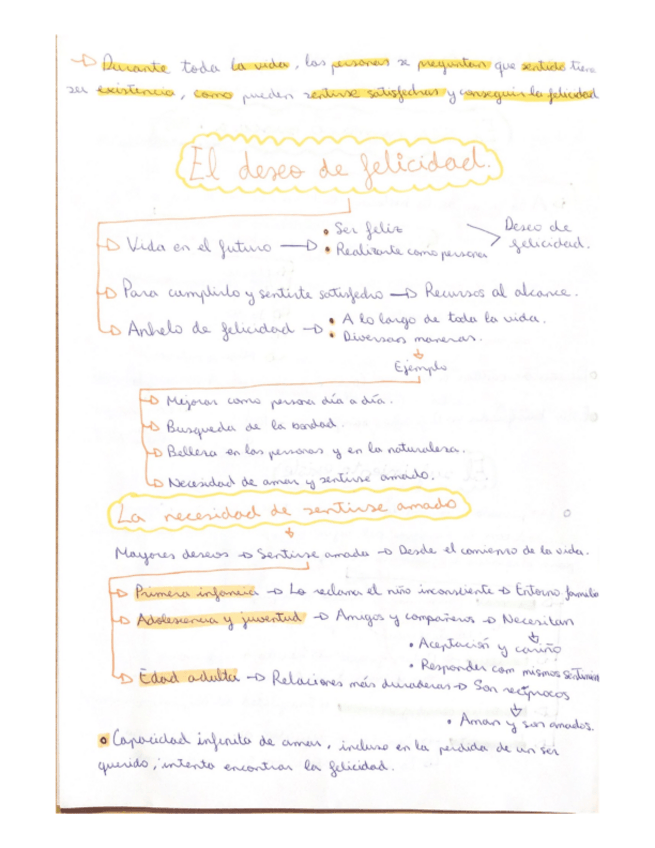 → Durante toda la vida, las personas se preguntan que sentido tiene
su existencia, como pueden sentirse satisfechas y conseguir la felicidad
El deseo de felicidad.
→ Vida en el futuro → • Ser feliz
• Realizarte como persona
Deseo de
felicidad.
→ Para cumplirlo y sentirte satisfecho → Recursos al alcance.
→ Anhelo de felicidad → • A lo largo de toda la vida.
• Diversas maneras.
Ejemplo
→ Mejorar como persona día a día.
→ Busqueda de la bondad.
→ Belleza en las personas y en la naturaleza.
→ Necesidad de amar y sentirse amado.
La necesidad de sentirse amado
Mayores deseos → Sentirse amado → Desde el comienzo de la vida.
→ Primera infancia → Lo reclama el niño inconsciente → Entorno
→ Adolescencia y juventud → Amigos y compañeros → Necesitan
• Aceptación y cariño
• Responder con mismos
→ Edad adulta → Relaciones más duraderas → Son recíprocos
• Aman y son amados.
• Capacidad infinita de amar, incluso en la perdida de un ser
querido, intenta encontrar la felicidad.